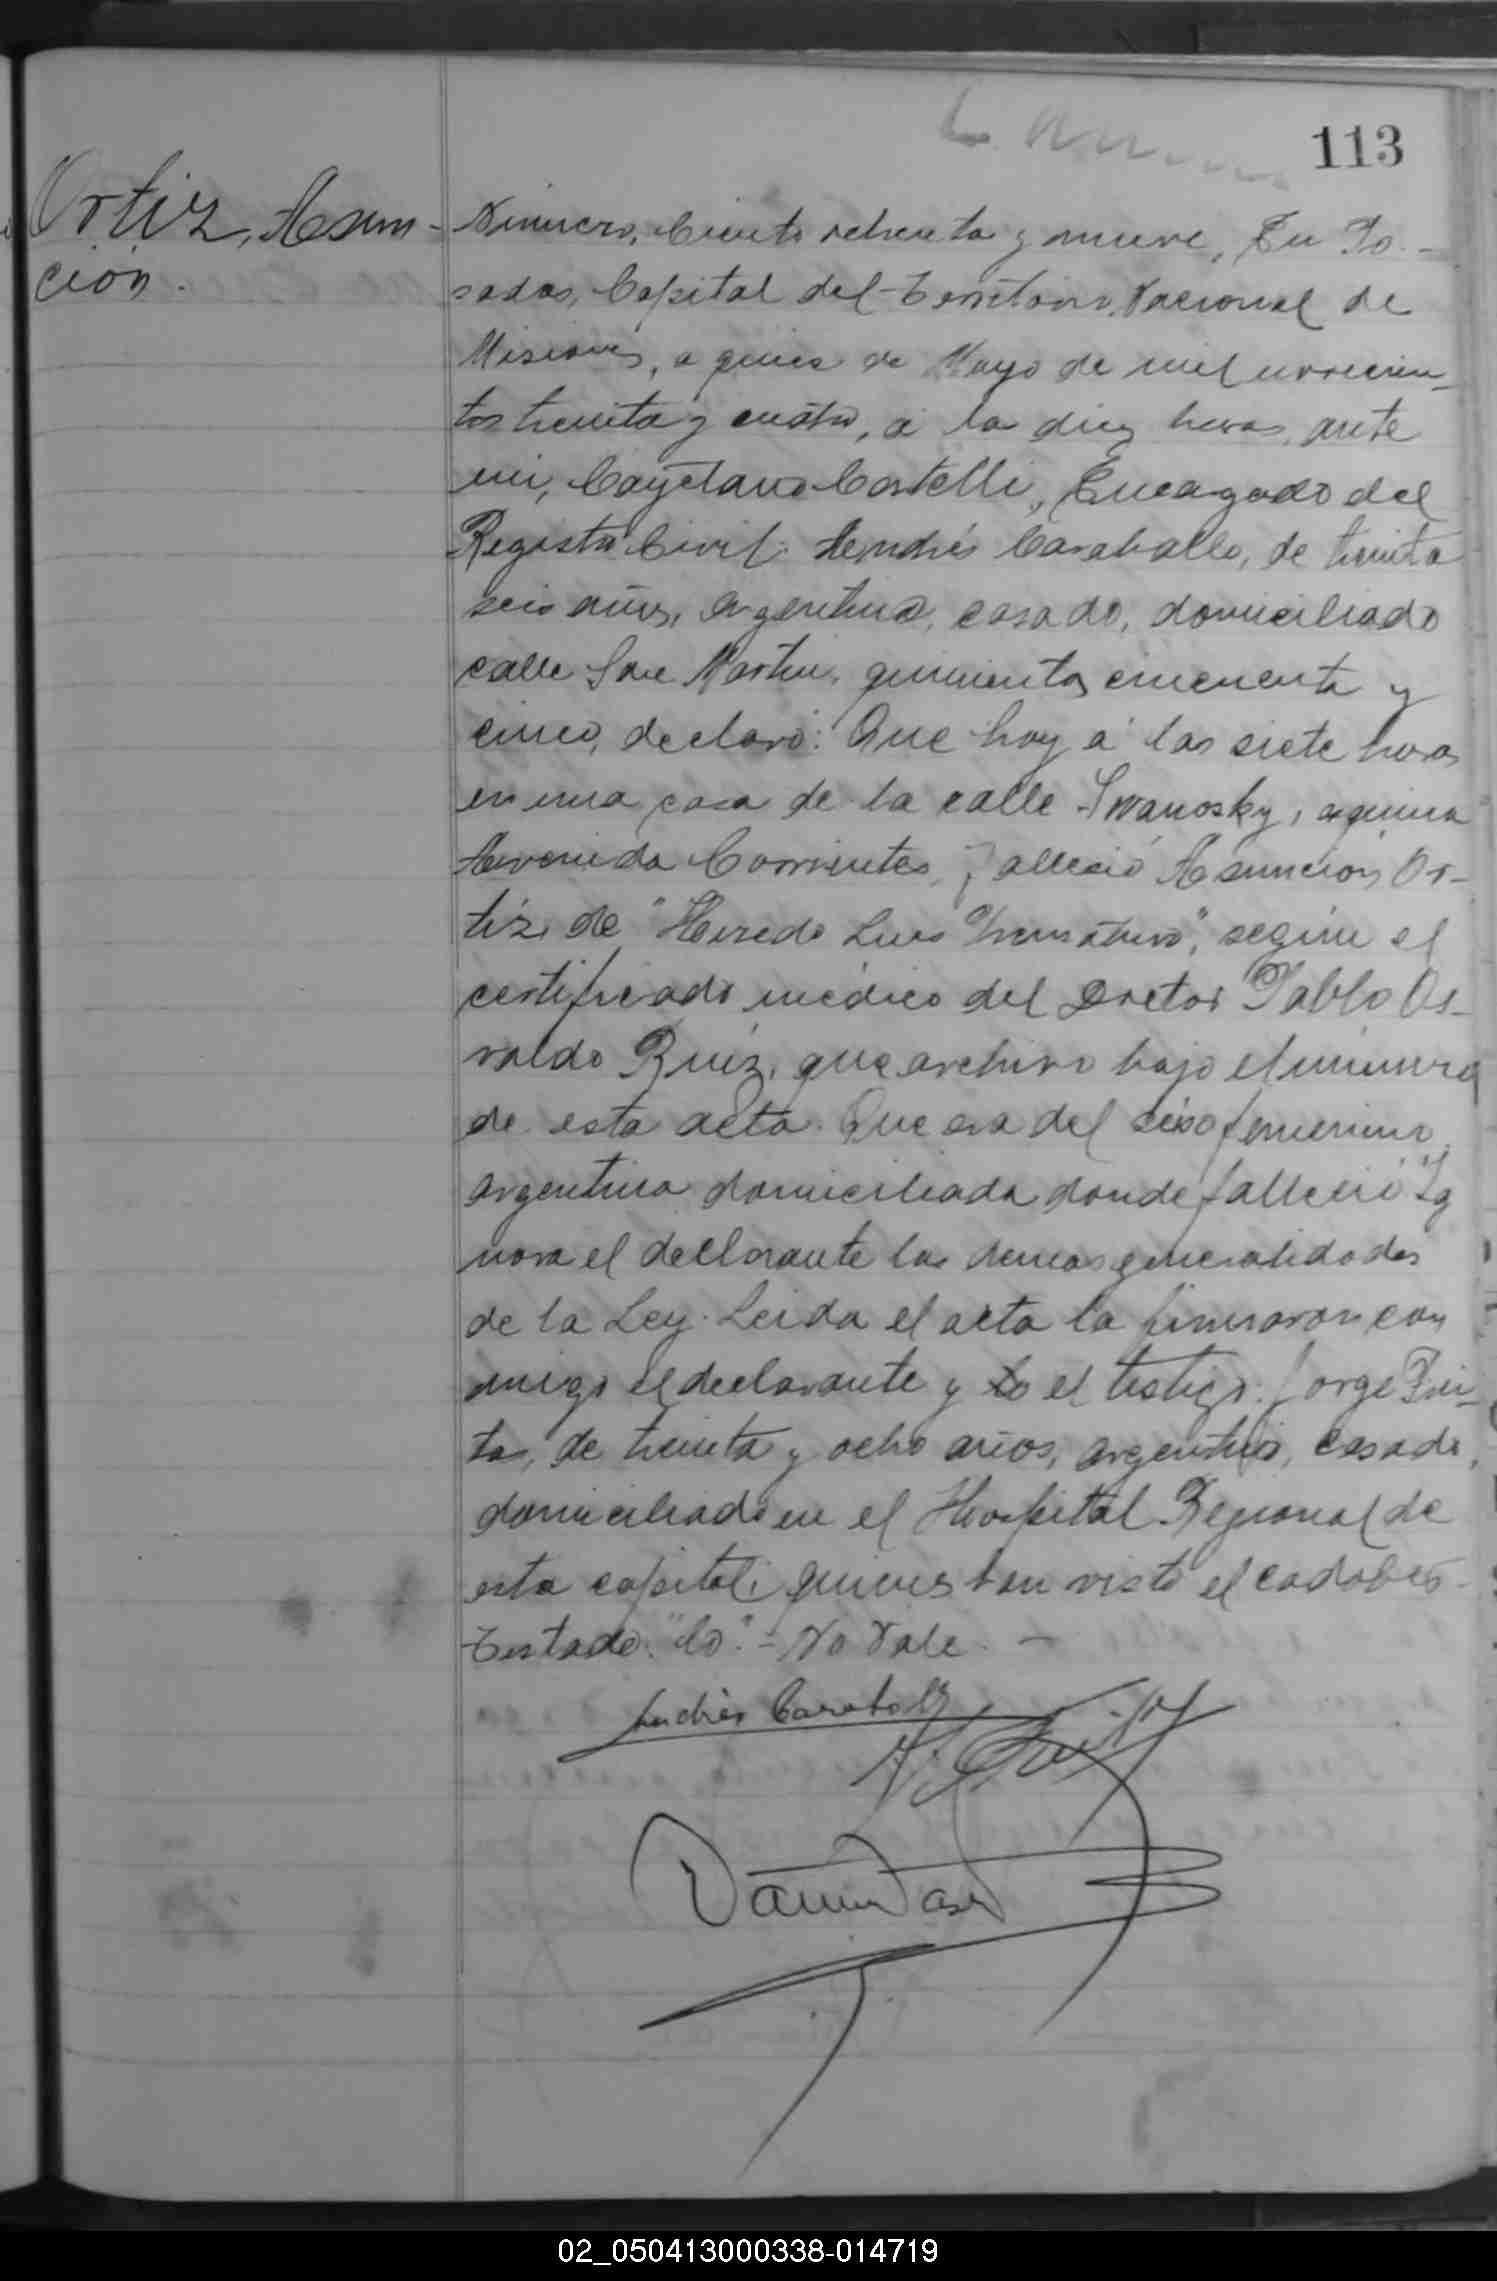 113
Ortiz, Asun-
ción.
Número, Ciento ochenta y nueve, En Po-
sadas, Capital del Territorio Nacional de
Misiones, a quince de Mayo de mil novecien-
tos treinta y cuatro, a las diez horas, ante
mi, Cayetano Castelli, Encargado del
Registro Civil: Andrés Caraballo, de treinta
seis años, argentino, casado, domiciliado
calle San Martin, quinientos cincuenta y
cinco, declaró: Que hoy a las siete horas
en una casa de la calle Swanosky, esquina
Avenida Corrientes, falleció Asunción Or-
tiz, de "Heredo Lues", según el
certificado médico del Doctor Pablo Os-
valdo Ruiz, que archivo bajo el número
de esta acta. Que era del sexo femenino
argentina domiciliada donde falleció Ig
nora el declarante las demas generalidades
de la Ley. Leida el acta la firmaron con
migo el declarante y lo el testigo: Jorge
de treinta y ocho años, argentino, casado,
domiciliado en el Hospital Regional de
esta capital; quienes han visto el cadaber-
Testado: "lo".- No Vale. -
Andrés Caraballo
02_050413000338-014719